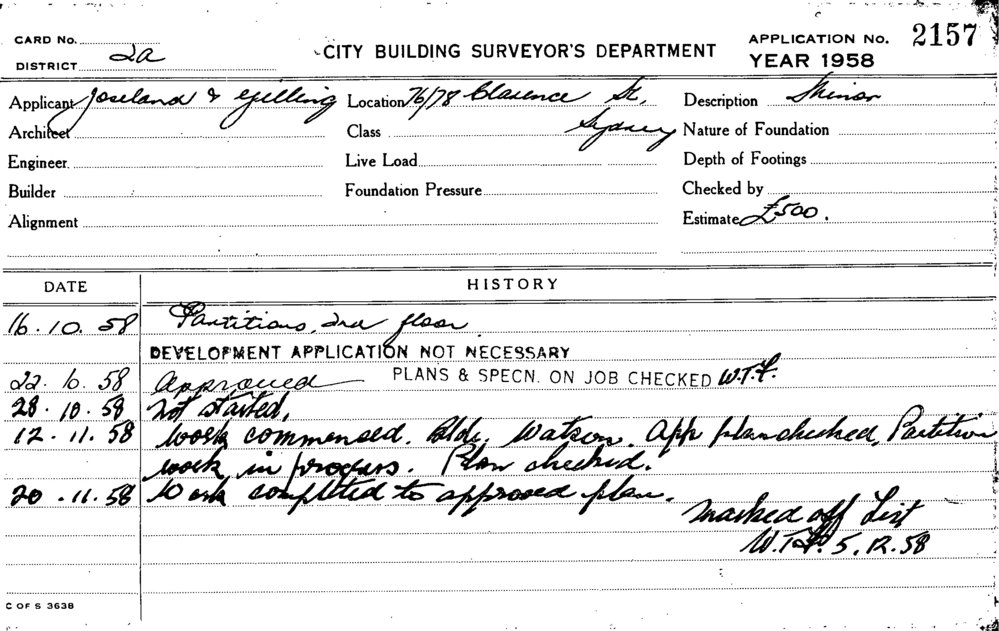 CARD No.
DISTRICT 2a
CITY BUILDING SURVEYOR'S DEPARTMENT
APPLICATION No. 2157
YEAR 1958
Applicant Joseland & Gilling Location 76/78 Clarence St, Description Minor
Architect Class Sydney Nature of Foundation
Engineer Live Load Depth of Footings
Builder Foundation Pressure Checked by
Alignment Estimate £500.
DATE HISTORY
16.10.58 Partitions, 2nd floor
DEVELOPMENT APPLICATION NOT NECESSARY
22.10.58 Approved PLANS & SPECN. ON JOB CHECKED W.T.F.
28.10.58 Not started.
12.11.58 Work commensed. Bldr. Watson. App plan checked, Partition
work in progress. Plan checked.
20.11.58 Work completed to approved plan.
Marked off List
W.T.F. 5.12.58
C OF S 3638